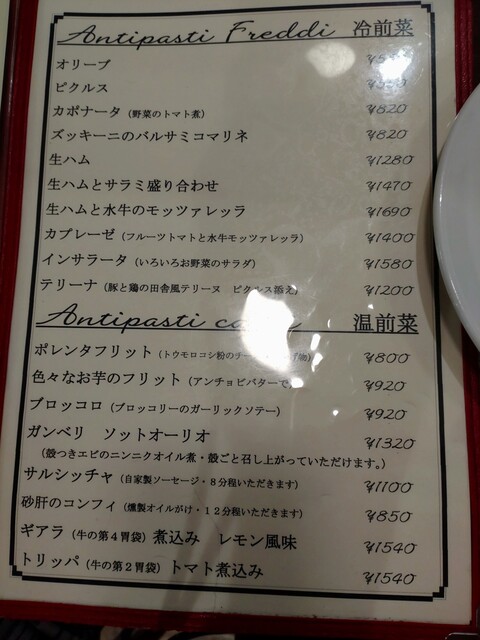 Antipasti Freddi 冷前菜
オリーブ
ピクルス
カポナータ (野菜のトマト煮) ¥820
ズッキーニのバルサミコマリネ ¥820
生ハム ¥1280
生ハムとサラミ盛り合わせ ¥1470
生ハムと水牛のモッツァレッラ ¥1690
カプレーゼ (フルーツトマトと水牛モッツァレラ) ¥1400
インサラータ (いろいろお野菜のサラダ) ¥1580
テリーナ (豚と鶏の田舎風テリーヌ ピクルス添え) ¥1200
Antipasti 温前菜
ポレンタフリット (トウモロコシ粉の ¥800
色々なお芋のフリット (アンチョビバターで ¥920
ブロッコロ (ブロッコリーのガーリックソテー) ¥920
ガンベリ ソットオーリオ ¥1320
(殻つきエビのニンニクオイル煮・殻ごと召し上がっていただけます。)
サルシッチャ (自家製ソーセージ・8分程いただきます) ¥1100
砂肝のコンフィ (燻製オイルがけ・12分程いただきます) ¥850
ギアラ (牛の第4胃袋) 煮込み レモン風味 ¥1540
トリッパ (牛の第2胃袋) トマト煮込み ¥1540